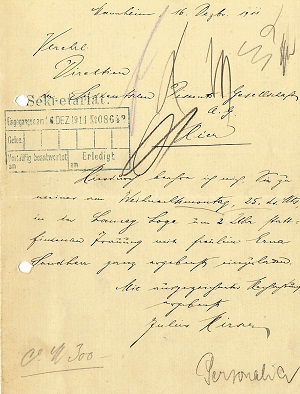 Mannheim, 16. Dezbr. 1911
Verehrl.
Direktion
der Rheinischen Gesellschaft
A.G.
Hier
Sekretariat:
Eingegangen am 16.DEZ.1911
Geles.
Vorläufig beantwortet Erledigt
am am
Hierdurch beehre ich mich, Sie zu
meiner am Weihnachtmontag, 25. ds. Mts.
in der Loge um 2 Uhr statt-
findenden Trauung mit Fräulein Erna
ganz ergebenst einzuladen.
Mit ausgezeichneter Hochachtung
ergebenst
Julius
300.-
Personalia